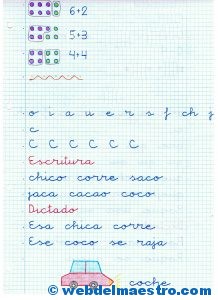 6+2
5+3
4+4
o i a u e r s f ch j
c
C C C C C C
Escritura
chico corre saco
jaca cacao coco
Dictado
Esa chica corre
Ese coco se raja
coche
© webdelmaestro.com